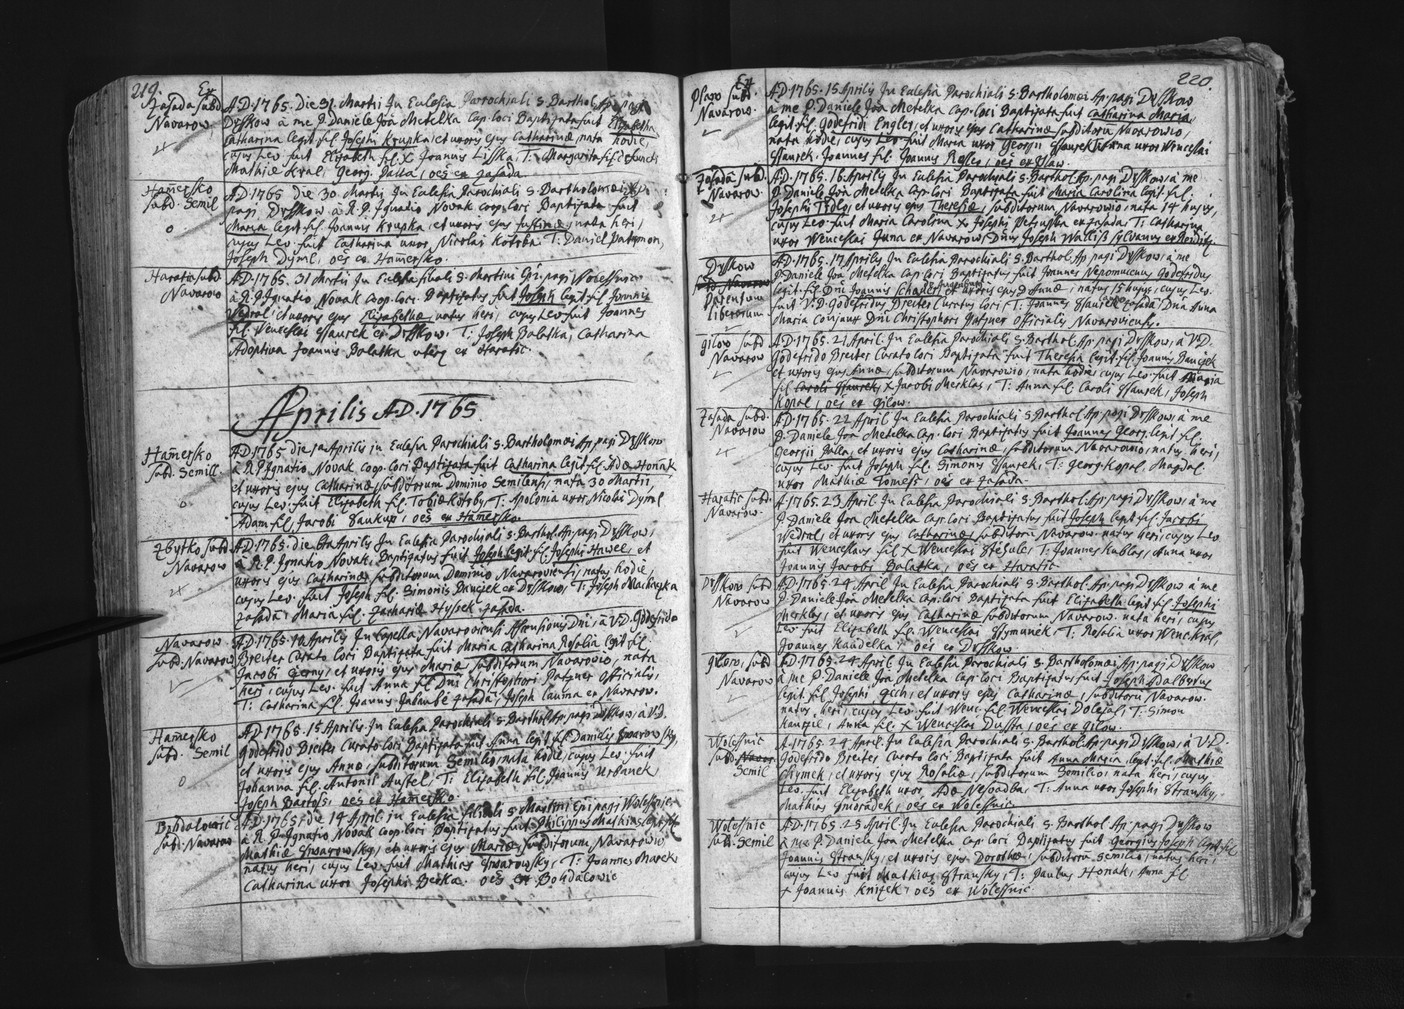 219.
Ex
Zasada subd.
Navarow
A.D. 1765. Die 31. Martii In Ecclesia Parrochiali S. Barthol. Ap. pagi
Dysskow à me P. Daniele Joa Metelka Cap. loci Baptisata fuit Elizabetha
Catharina legit. fil. Josephi Krupka, et uxoris ejus Catharinæ, nata hodie,
cujus Lev. fuit Elizabeth fil. X Joannis Lisska, T. Margarita fil. defuncti
Mathiæ Kral, Georg. Pulta, oēs ex Zasada.
Hamersko
subd. Semil
o
A.D. 1765 die 30. Martii In Ecclesia Parochiali S. Bartholomæi Ap.
pagi Dysskow à R.P. Ignatio Novak coop. loci Baptisata fuit
Maria legit. fil. Joannis Krupka, et uxoris ejus Justinæ, nata heri,
cujus Lev. fuit Catharina uxor Nicolai Kotrba T. Daniel Patzmon,
Joseph Dyml, oēs ex Hamersko.
Haratic subd
Navarow
A.D. 1765. 31 Martii In Ecclesia filiali S. Martini Epi. pagi Wolessnic
à R.P. Ignatio Novak Coop. loci Baptisatus fuit Joseph legit. fil. Joannis
Wedral, et uxoris ejus Elisabethæ, natus heri, cujus Lev. fuit Joannes
fil. Wenceslai Haurek ex Dysskow. T. Joseph Balatka, Catharina
Adoptiva Joannis Balatka uterq ex Haratic.
Aprilis A.D. 1765
Hamersko
subd. Semill.
o
A.D. 1765 die 1a Aprilis in Ecclesia Parochiali S. Bartholomæi Ap. pagi Dysskow
à R.P. Ignatio Novak Coop. loci Baptisata fuit Catharina legit. fil. Adæ Honak
et uxoris ejus Catharinæ, subditorum Dominio Semilensi, nata 30 Martii,
cujus Lev. fuit Elizabeth fil. Tobiæ Kotrby, T. Apolonia uxor Nicolai Dyml
Adam fil. Jacobi Saukup, oēs ex Hamersko.
Zbytko subd
Navarow
A.D. 1765. die 6ta Aprilis In Ecclesia Parochiali S. Barthol. Ap. pagi Dysskow,
à R.P. Ignatio Novak, Baptisatus fuit Joseph legit. fil. Josephi Hawel, et
uxoris ejus Catharinæ subditorum Dominio Navaroviensi, natus hodie,
cujus Lev. fuit Joseph fil. Simonis Daucjek ex Dysskow, T. Joseph Machaczka
Zasada, Maria fil. Zachariæ Hyssek Zasada.
Navarow
subd. Navarow
A.D. 1765. 10 Aprilis In Capella Navarovicensi Assensionis Dni, à V.D. Godefrido
Breiter Curato loci Baptisata fuit Maria Catharina Rosalia legit fil.
Jacobi Czerny, et uxoris ejus Mariæ subditorum Navarovio, nata
heri, cujus Lev. fuit Anna fil. Dni Christophori Patzner Officialis,
T. Catharina fil. Joannis Zasada, Joseph Launa ex Navarow.
Hamersko
subd. Semil
o
A.D. 1765. 15 Aprilis. In Ecclesia Parochiali S. Barthol. Ap. pagi Dysskow, à V.D.
Godefrido Breiter Curato loci Baptisata fuit Anna legit fil Danielis Swarowsky
et uxoris ejus Annæ, subditorum Semilio, nata hodie, cujus Lev. fuit
Johanna fil. Antonii Austel, T. Elizabeth fil. Joannis Urbanek,
Joseph Bartoss, oēs ex Hamersko.
Bohdalowic
subd. Navarow
A.D. 1765. die 14 April. in Ecclesia filiali S. Martini Epi pagi Wolessnic
à R.P. Ignatio Novak coop. loci Baptisatus fuit Philippus Mathias legit. fil.
Mathiæ Swarowsky, et uxoris ejus Mariæ, subditorum Navarowio
natus heri, cujus Lev. fuit Mathias Swarowsky, T. Joannes Mareks
Catharina uxor Josephi Berka. oēs ex Bohdalowic
220.
Ex
Plaw subd.
Navarow.
A.D. 1765. 15 Aprilis In Ecclesia Parochiali S. Bartholomæi Ap. pagi Dysskow
à me P. Daniele Joa Metelka Cap. loci Baptisata fuit Catharina Maria,
legit. fil. Godefridi Engler, et uxoris ejus Catharinæ subditorū Navarowio,
nata hodie, cujus Lev. fuit Maria uxor Georgii Haurek, uxor Wenceslai
Hausek, Joannes fil. Joannis Resler, oēs ex Plaw.
Zasada subd.
Navarow
A.D. 1765. 16 Aprilis In Ecclesia Parochiali S. Barthol. Ap. pagi Dysskow à me
P. Daniele Joa Metelka Cap. loci Baptisata fuit Maria Carolina legit. fil.
Josephi, et uxoris ejus Theresiæ, subditorum Navarowio, nata 14 hujus,
cujus Lev. fuit Maria Carolina X Josephi Petruska ex Zasada. T. Catharina
uxor Wenceslai Anna ex Navarow, Dnus Joseph Walliss Sylvanus ex
Dysskow
subd. Navarow
Parentum
liberorum
A.D. 1765. 17 Aprilis In Ecclesia Parochiali S. Barthol. Ap. pagi Dysskow à me
P. Daniele Joa Metelka Cap. loci Baptisatus fuit Joannes Nepomucenus Godefridus
legit. fil. Dni Joannis et uxoris ejus D. Annæ, natus 15 hujus, cujus Lev.
fuit V.D. Godefridus Breiter Curatus loci, T. Joannes Hausek ex Zasada, Dna Anna
Maria Conjunx Dni Christophori Patzner Officialis Navaroviensis.
Gilow subd
Navarow
A.D. 1765. 21 April. In Ecclesia Parochiali S. Barthol. Ap. pagi Dysskow, à V.D.
Godefrido Breiter Curato loci Baptisata fuit Theresia legit. fil. Joannis Daucjek
et uxoris ejus Annæ, subditorum Navarowio, nata hodie, cujus Lev. fuit Maria
fil Caroli Hausrek, X Jacobi Merklas, T. Anna fil. Caroli Hausek, Joseph
Kopal, oēs ex Gilow.
Zasada subd.
Navarow
A.D. 1765. 22 April. In Ecclesia Parochiali S. Barthol. Ap. pagi Dysskow, à me
P. Daniele Joa Metelka Cap. loci Baptisatus fuit Joannes Georg. legit fil.
Georgii Pulta, et uxoris ejus Catharinæ, subditorum Navarowio, natus heri,
cujus Lev. fuit Joseph fil. Simonis Hausek, T. Georg. Kopal, Magdal.
uxor Mathiæ Tomess, oēs ex Zasada.
Haratic subd.
Navarow.
A.D. 1765. 23 April. In Ecclesia Parochiali S. Barthol. Ap. pagi Dysskow, à me
P. Daniele Joa Metelka Cap. loci Baptisatus fuit Joseph legit. fil. Jacobi
Wedral, et uxoris ejus Catharinæ, subditorū Navarow. natus heri, cujus Lev.
fuit Wenceslaus fil. X Wenceslai Stehule, T. Joannes Kublas, Anna uxor
Joannis Jacobi Balatka, oēs ex Haratic.
Dysskow subd
Navarow
A.D. 1765. 24. April In Ecclesia Parochiali S. Barthol. Ap. pagi Dysskow à me
P. Daniele Joa Metelka Cap. loci Baptisata fuit Elizabeth legit fil. Josephi
Merklas, et uxoris ejus Catharinæ subditorum Navarow. nata heri, cujus
Lev. fuit Elizabeth fil. Wenceslai Szymunek, T. Rosalia uxor Wenc. Kral,
Joannes Kaudelka, oēs ex Dysskow
Gilow, subd
Navarow
A.D. 1765. 24. April. In Ecclesia Parochiali S. Bartholomæi Ap. pagi Dysskow
à me P. Daniele Joa Metelka Cap. loci Baptisatus fuit Joseph Adalbertus
legit. fil. Josephi Czech, et uxoris ejus Catharinæ, subditorū Navarow.
natus heri, cujus Lev. fuit Wenc. fil. Wenceslai Dolejss, T. Simon
Kauzil, Anna fil. X Wenceslai Dussta, oēs ex Gilow.
Wolessnic
subd. Navar
Semil
A.D. 1765. 24 April. In Ecclesia Parochiali S. Barthol. Ap. pagi Dysskow, à V.D.
Godefrido Breiter Curato loci Baptisata fuit Anna Maria legit. fil. Mathiæ
Chymek, et uxoris ejus Rosaliæ, subditorum Semilio, nata heri, cujus
Lev. fuit Elizabeth uxor Adæ Nesvadba, T. Anna uxor Josephi Stransky,
Mathias Hnoradek, oēs ex Wolessnic.
Wolessnic
subd. Semil
A.D. 1765. 25 April. In Ecclesia Parochiali S. Barthol. Ap. pagi Dysskow
à me P. Daniele Joa Metelka Cap. loci Baptisatus fuit Georgius Joseph legit fil
Joannis Stransky, et uxoris ejus Dorotheæ, subditorū Semilio, natus heri,
cujus Lev. fuit Mathias Stransky, T. Paulus Honak, Anna fil
X Joannis Knizek, oēs ex Wolessnic